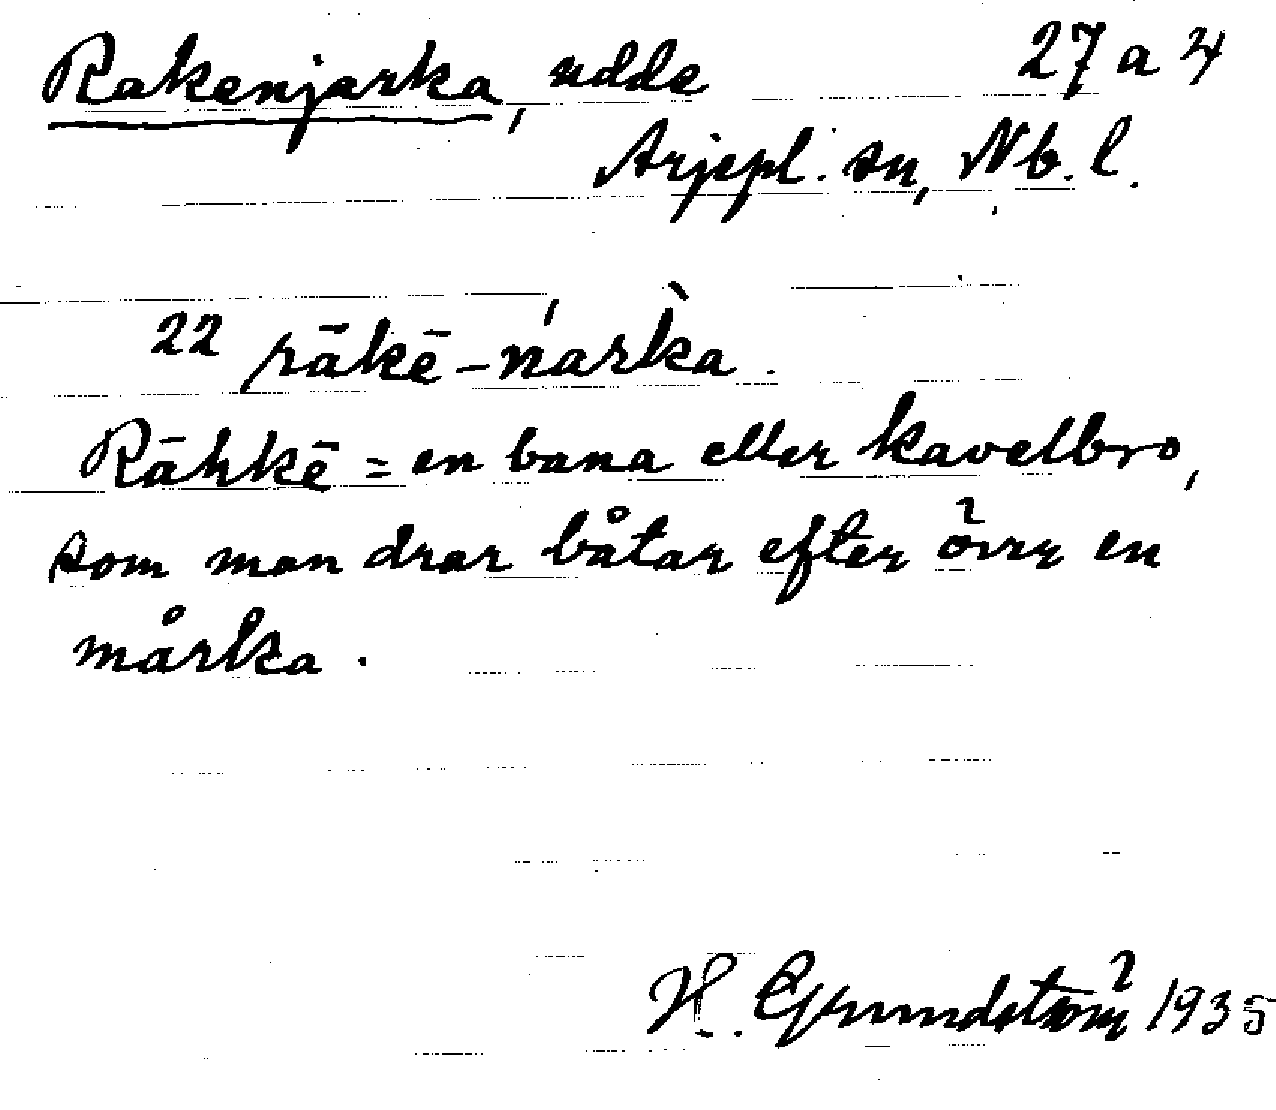 Rakenjarka, udde 27 a 4
Arjepl. sn, Nb. l.
22 rākē-ńarkà.
Rāhkē = en bana eller kavelbro,
som man drar båtar efter över en
mårka.
H. Grundström 1935